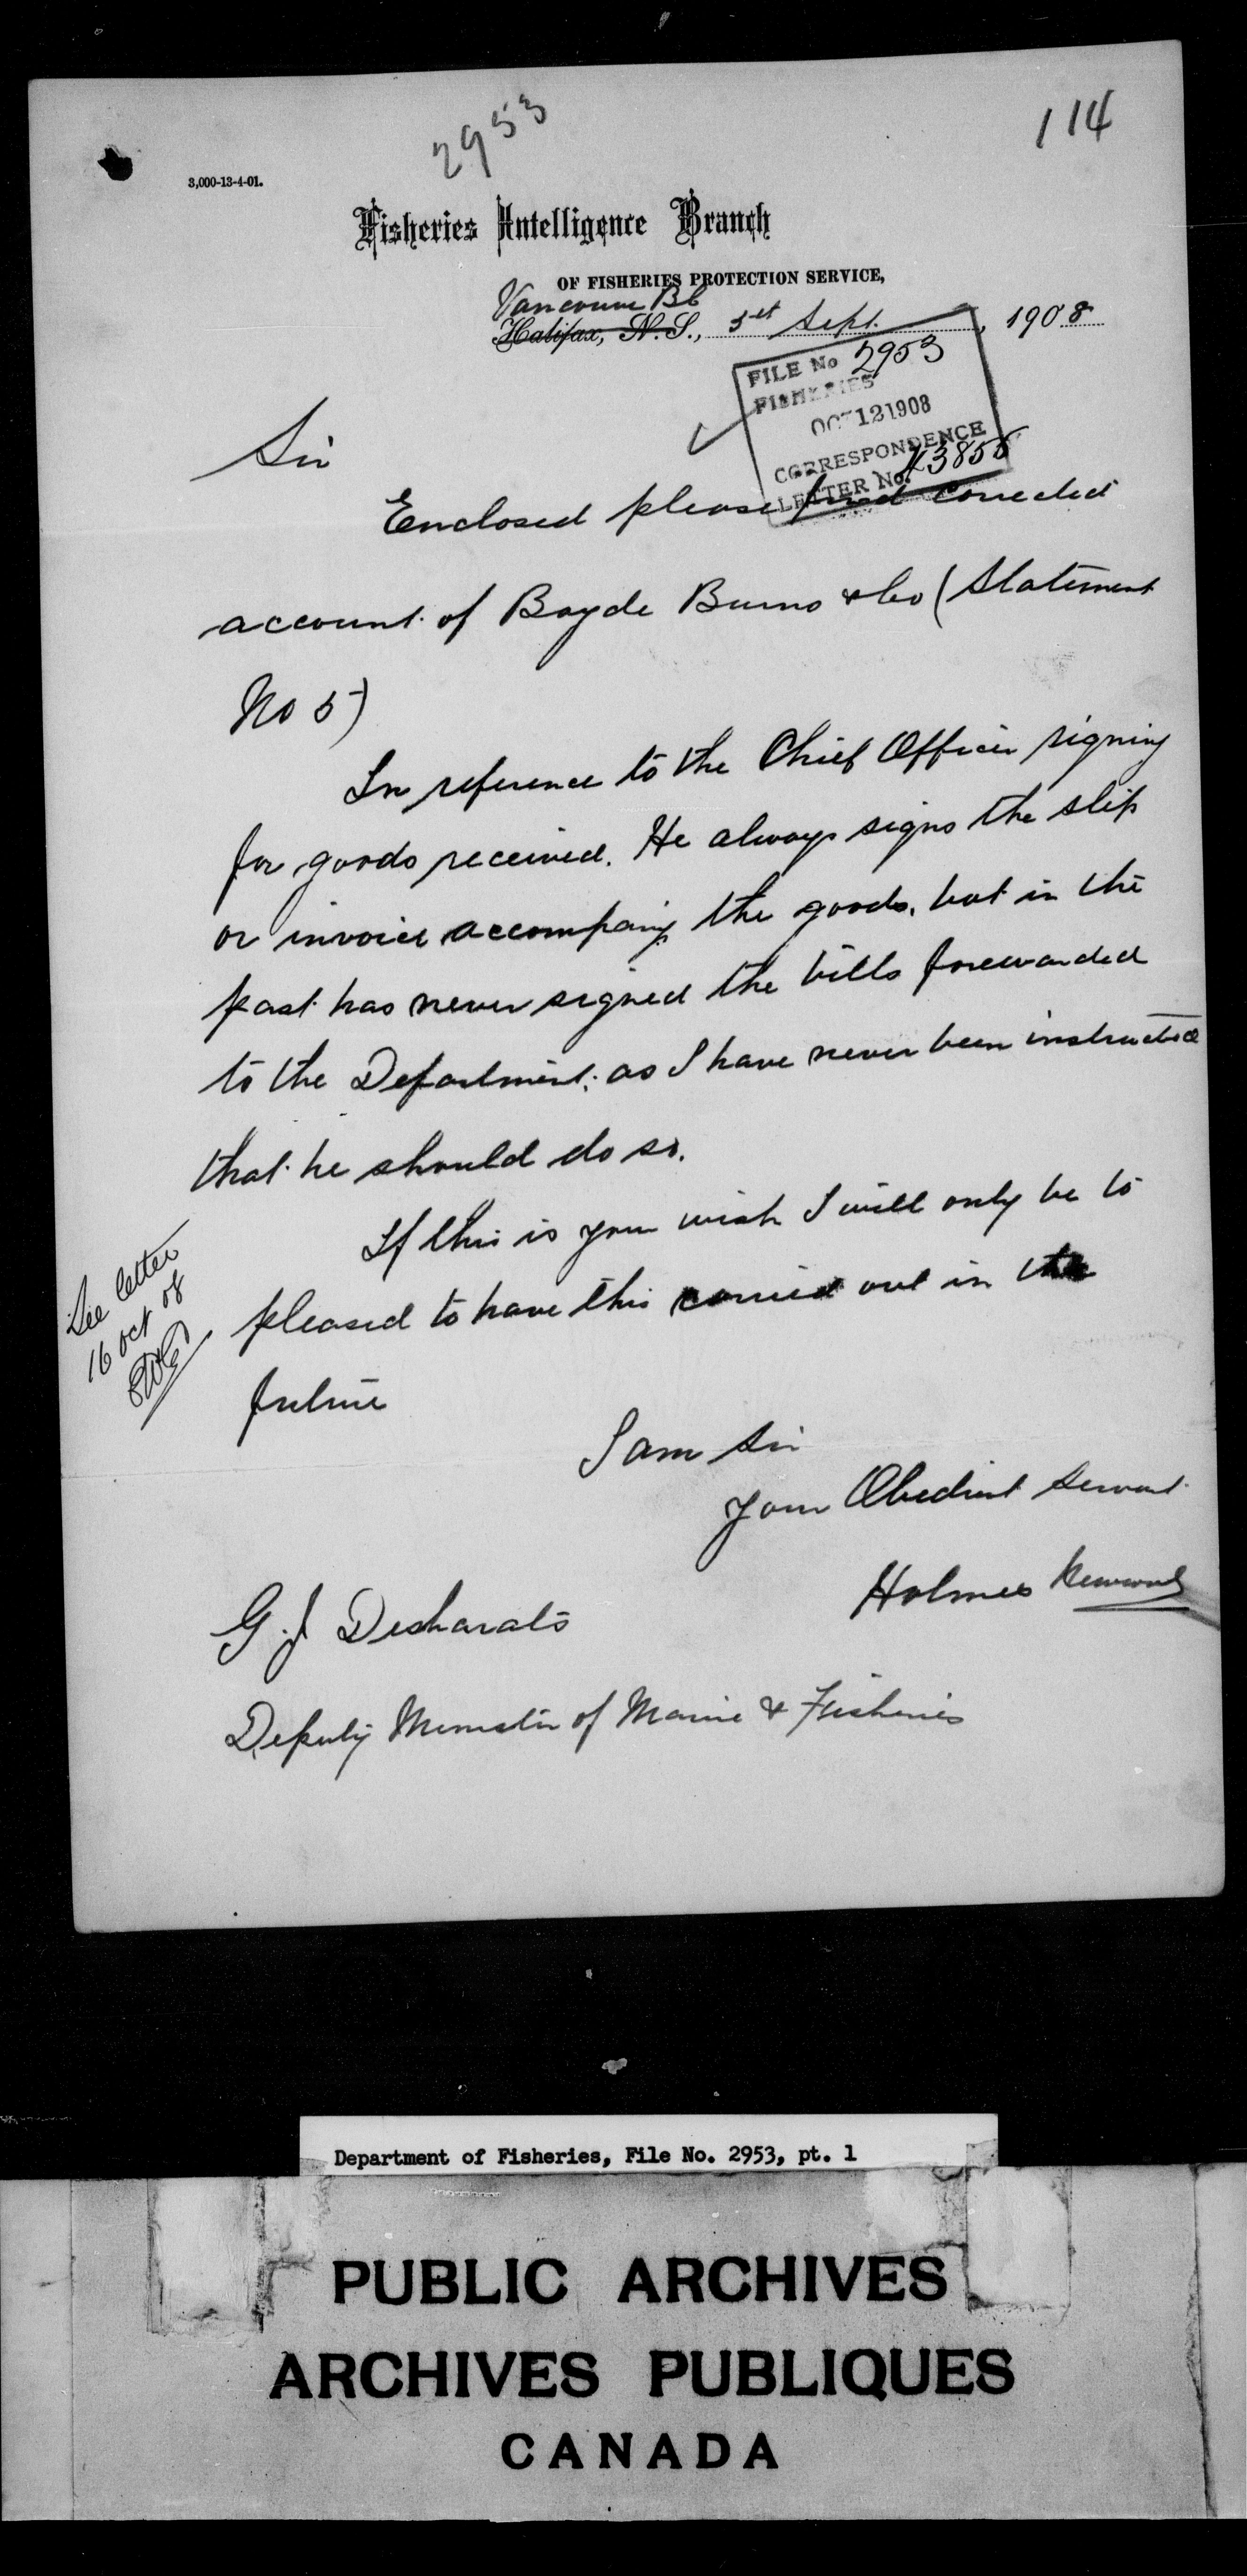 2953
114
3,000-13-4-01.
Fisheries Intelligence Branch
OF FISHERIES PROTECTION SERVICE,
Vancouver BC
Halifax, N. S., 5 Sept. , 1908
FILE No 2953
FISHERIES
OCT 12 1908
CORRESPONDENCE
LETTER No.
Sir
Enclosed please find corrected
account of Boyde Burns & Co (Statement
No 5)
In reference to the Chief Officer signing
for goods received. He always signs the slip
or invoice accompaning the goods, but in the
past has never signed the bills forewarded
to the Department; as I have never been instructed
that he should do so.
If this is your wish I will only be to
pleased to have this carried out in the
future
See letter
16 Oct 08
I am Sir
Your Obedient Servant
Holmes Newcomb
G. J Desbarats
Deputy Minister of Marine & Fisheries
Department of Fisheries, File No. 2953, pt. 1
PUBLIC ARCHIVES
ARCHIVES PUBLIQUES
CANADA